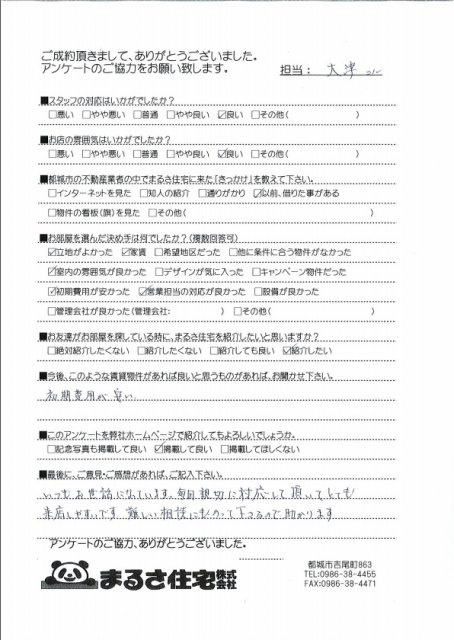 ご成約頂きまして、ありがとうございました。
アンケートのご協力をお願い致します。
担当： 大津
■スタッフの対応はいかがでしたか？
□悪い □やや悪い □普通 □やや良い ☑良い □その他( )
■お店の雰囲気はいかがでしたか？
□悪い □やや悪い □普通 □やや良い ☑良い □その他( )
■都城市の不動産業者の中でまるさ住宅に来た「きっかけ」を教えて下さい。
□インターネットを見た □知人の紹介 □通りがかり ☑以前、借りた事がある
□物件の看板(旗)を見た □その他( )
■お部屋を選んだ決め手は何でしたか？(複数回答可)
☑立地がよかった ☑家賃 □希望地区だった □他に条件に合う物件がなかった
☑室内の雰囲気が良かった □デザインが気に入った □キャンペーン物件だった
☑初期費用が安かった ☑営業担当の対応が良かった □設備が良かった
□管理会社が良かった(管理会社: ) □その他( )
■お友達がお部屋を探している時に、まるさ住宅を紹介したいと思いますか？
□絶対紹介したくない □紹介したくない □紹介しても良い ☑紹介したい
■今後、このような賃貸物件があれば良いと思うものがあれば、お聞かせ下さい。
初期費用が安い
■このアンケートを弊社ホームページで紹介してもよろしいでしょうか。
□記念写真も掲載して良い ☑掲載して良い □掲載してほしくない
■最後に、ご意見・ご感想があれば、ご記入下さい。
いつもお世話になっています。毎回親切に対応して頂いてとても
来店しやすいです 難しい相談にものって下さるので助かります
アンケートのご協力、ありがとうございました。
まるさ住宅株式会社
都城市吉尾町863
TEL:0986-38-4455
FAX:0986-38-4471